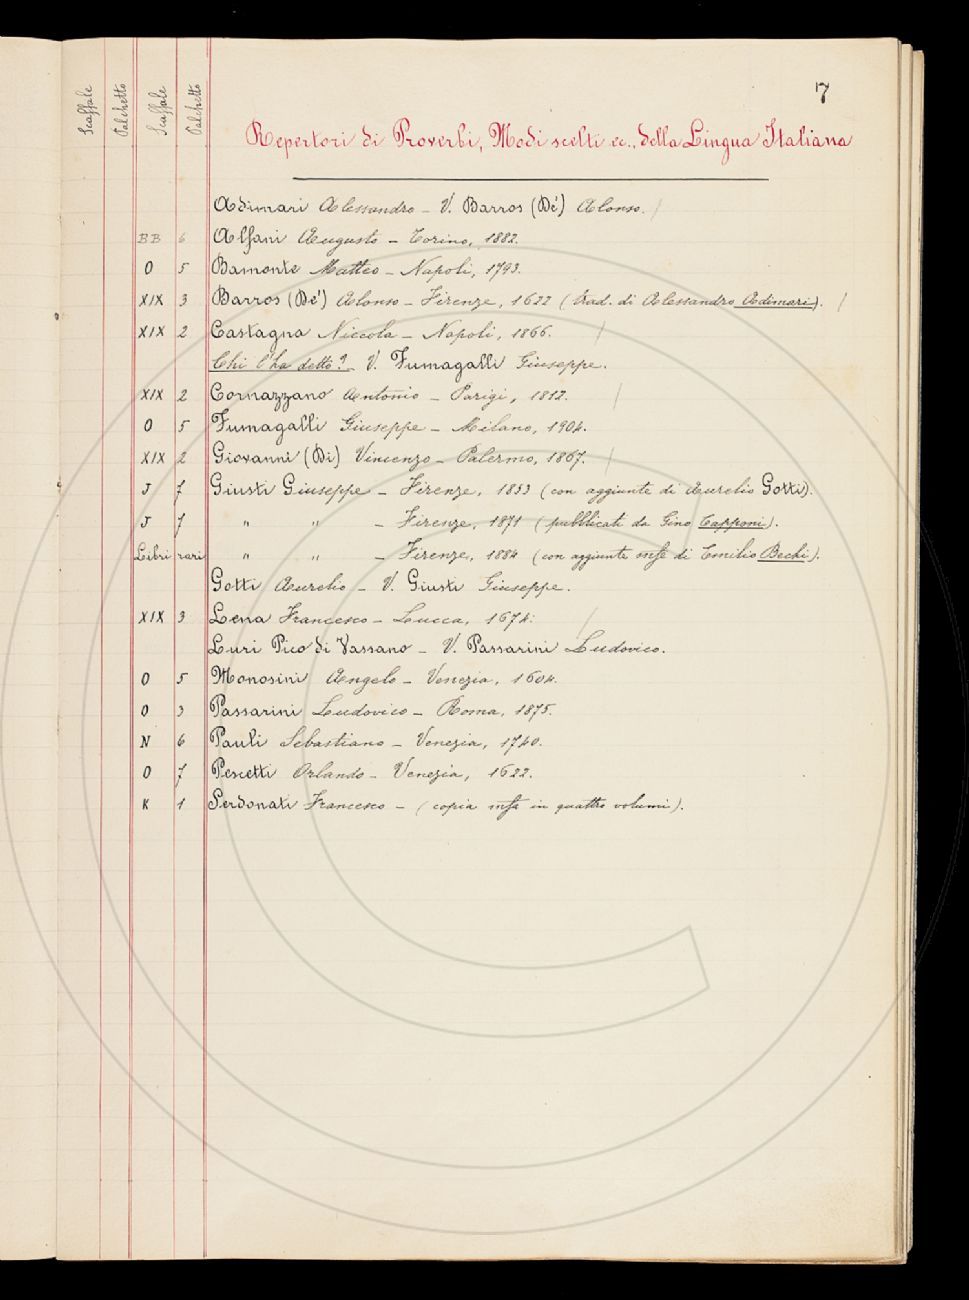 7
Scaffale Palchetto Scaffale Palchetto
Repertori di Proverbi, Modi scelti ec., della Lingua Italiana
Adimari Alessandro – V. Barros (De') Alonso. /
BB 6 Alfani Augusto – Torino, 1882.
O 5 Bamonte Matteo – Napoli, 1793.
XIX 3 Barros (De') Alonso – Firenze, 1622 (trad. di Alessandro Adimari). /
XIX 2 Castagna Niccola – Napoli, 1866. /
Chi l'ha detto? – V. Fumagalli Giuseppe.
XIX 2 Cornazzano Antonio – Parigi, 1812. /
O 5 Fumagalli Giuseppe – Milano, 1904.
XIX 2 Giovanni (Di) Vincenzo – Palermo, 1867. /
J 7 Giusti Giuseppe – Firenze, 1853 (con aggiunte di Aurelio Gotti).
J 7 " " – Firenze, 1871 (pubblicati da Gino Capponi).
Libri rari " " – Firenze, 1884 (con aggiunte msse di Emilio Bechi).
Gotti Aurelio – V. Giusti Giuseppe.
XIX 3 Lena Francesco – Lucca, 1674. /
Luri Pico di Vassano – V. Passarini Ludovico.
O 5 Monosini Angelo – Venezia, 1604.
O 3 Passarini Ludovico – Roma, 1875.
N 6 Pauli Sebastiano – Venezia, 1740.
O 7 Pescetti Orlando – Venezia, 1622.
K 1 Serdonati Francesco – (copia mssa in quattro volumi).